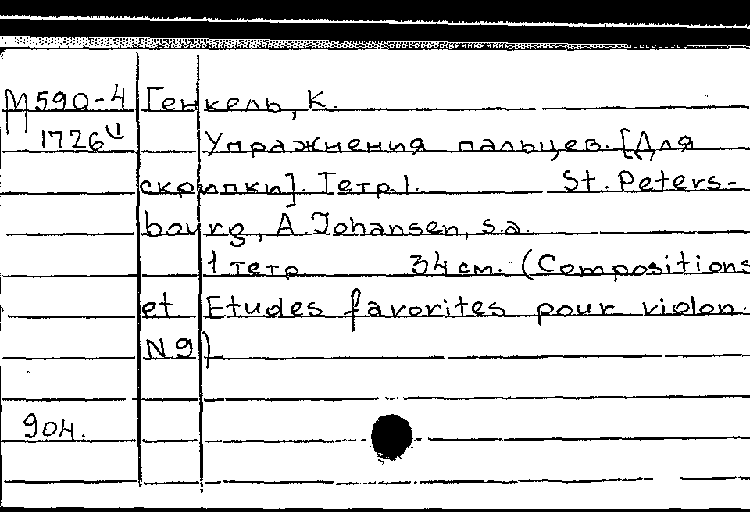 М590-4 Генкель, К.
1726 Упражнения пальцев. [Для
скрипки]. Тетр 1. St. Peters-
bourg, A. Johansen, s.a.
1 тетр 34 см. (Compositions
et Etudes favorites pour violon.
N 9)
904.